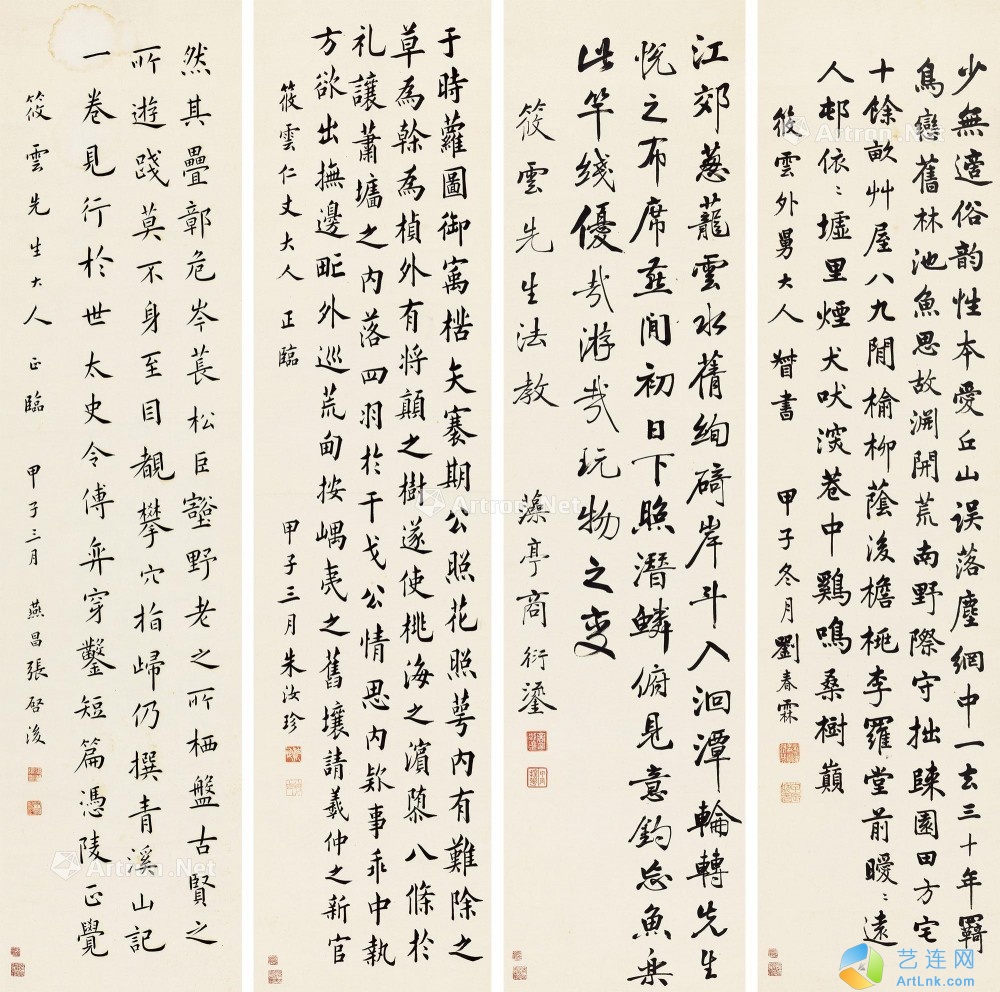 少無適俗韵性本愛丘山误落塵網中一去三十年羁
鳥戀舊林池魚思故渊開荒南野際守拙歸園田方宅
十餘畝艸屋八九閒榆柳蔭後檐桃李羅堂前曖〻遠
人邨依〻墟里煙犬吠深巷中鷄鳴桑樹巔
筱雲外舅大人督書 甲子冬月劉春霖
江郊蔥蘢雲水蒨絢碕岸斗入洄潭輪轉先生
悦之布席燕閒初日下照潛鱗俯見意釣忘魚樂
此竿綫優哉游哉玩物之变
筱雲先生法教 藻亭商衍瀛
于時蘿圖御㝢楛矢褰期公照花照萼内有難除之
草為榦為楨外有将顛之樹遂使桃海之濱隳八條於
礼讓蕭墻之内落四羽於干戈公情思内欵事乖中執
方欲出撫邊甿外巡荒甸按嵎夷之舊壤請羲仲之新官
筱雲仁丈大人正臨 甲子三月朱汝珍
然其疊鄣危岑萇松臣壑野老之所栖盤古賢之
所遊踐莫不身至目覩攀穴指歸仍撰青溪山記
一卷見行於世太史令傅弈穿鑿短篇憑陵正覺
筱雲先生大人正臨 甲子三月 燕昌張啓後
Artron.Net
Artron.Net
Artron.Net
Artron.Net
艺连网
ArtLnk.com